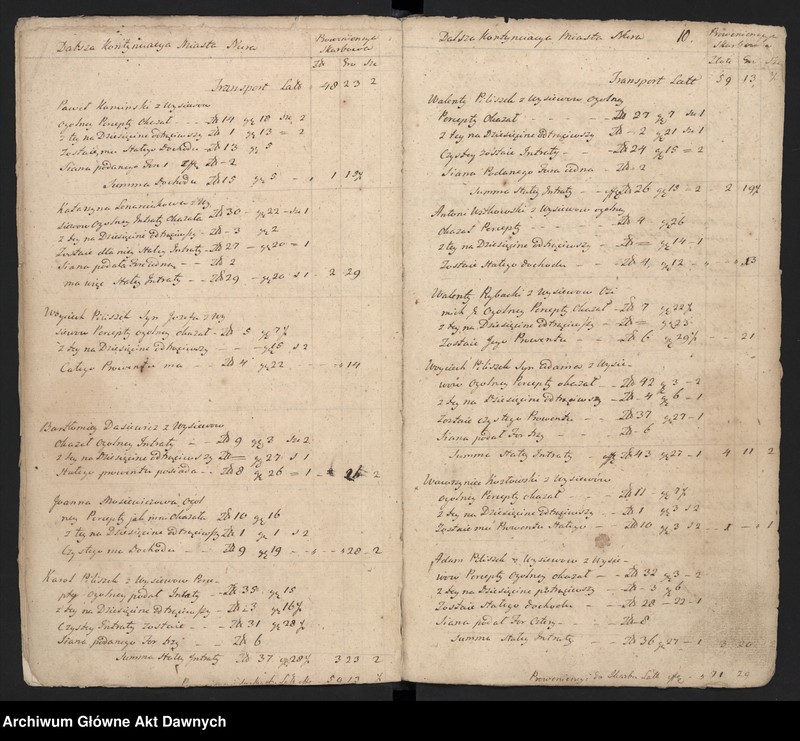 Dalsza Kontynuacya Miasta Nura
Prowenencya
Skarbowa
Zł Gro Sze
Transport Latt 48 23 2
Paweł Kaminski z Wysiewow
Ogolney Percepty Okazał Zł 14 gr 18 Sze 2
z tey na Dziesięcine Odtrąciwszy Zł 1 gr 13 = 2
Zostaie mu Stałego Dochodu Zł 13 gr 5
Siana podanego For 1 Zł - 2
Summa Dochodu Zł 15 gr 5 1 15½
Katarzyna
siewow Ogolney Intraty Okazała Zł 30 - gr 22 - Sze 1
z tey na Dziesięcine Odtrąciwszy Zł - 3 gr 2
Zostaie dla niey Stałey Intraty Zł 27 - gr 20 = 1
Siana podała For iedną Zł 2
ma więc Stałey Intraty Zł 29 - gr 20 s 1 - 2 - 29
Woyciech Piliszek Syn Jozefa z Wy
siewow Percepty ogolney okazał Zł 5 gr 7½
z tey na Dziesięcine Odtrąciwszy gr 15 s 2
Całego Prowentu ma Zł 4 gr 22 14
Bartłomiey Dasiewicz z Wysiewow
Okazał Ogolney Intraty Zł 9 gr 3 Sze 2
z tey na Dziesięcine Odtrąciwszy Zł = gr 27 s 1
Stałego prowentu posiada Zł 8 gr 26 = 1 26 = 2
Joanna Mosiewiczowa Ogol
ney Percepty jak inni Okazała Zł 10 gr 16
z tey na Dziesięcine Odtrąciwszy Zł 1 gr 1 s 2
Czystego ma Dochodu Zł 9 gr 19 28 - 2
Karol Piliszek z Wysiewow
Ogolney podał Intraty Zł 35 gr 15
z tey na Dziesięcine Odtrąciwszy Zł 3 gr 16½
Czystey Intraty zostaie Zł 31 gr 28½
Siana podanego For trzy Zł 6
Summa Stałey Intraty Zł 37 gr 28½ 3 23 2
59 13 ½
Dalsza Kontynuacya Miasta Nura 10.
Proweniencya
Skarbowa
Złote Gro Sze
Transport Latt 59 13 ½
Walenty Piliszek z Wysiewow Ogolney
Percepty Okazał Zł 27 gr 7 Sze 1
z tey na Dziesięcine Odtrąciwszy Zł - 2 gr 21 Sze 1
Czystey zostaie Intraty Zł 24 gr 15 = 2
Siana Podanego Fora iedna Zł - 2
Summa Stałey Intraty Zł 26 gr 15 - 2 - 2 19½
Antoni z Wysiewow ogolney
Okazał Percepty Zł 4 gr 26
z tey na Dziesięcine Odtrąciwszy Zł = gr 14 - 1
Zostaie Stałego Dochodu Zł 4 gr 12 13
Walenty Rybacki z Wysiewow Ozi
mich Ogolney Percepty Okazał Zł 7 gr 22½
z tey na Dziesięcine Odtrąciwszy Zł = gr 23
Zostaie Jego Prowentu Zł 6 gr 29½ 21
Woyciech Piliszek Syn Adama z Wysie-
wow Ogolney Percepty okazał Zł 42 gr 3 - 2
z tey na Dziesięcine Odtrąciwszy Zł - 4 gr 6 - 1
Zostaie czystego Prowentu Zł 37 gr 27 - 1
Siana podał For trzy Zł - 6
Summa Stałey Intraty Zł 43 gr 27 - 1 4 11 2
Wawrzyniec Kozłowski z Wysiewow
Ogolney Percepty okazał Zł 11 gr 7½
z tey na Dziesięcine Odtrąciwszy Zł 1 gr 3 s 2
Zostaie mu Prowentu Stałego Zł 10 gr 3 s 2 1 - 1
Adam Piliszek z Wysiewow z Wysie-
wow Percepty Ogolney okazał Zł 32 gr 3 - 2
z tey na Dziesięcine odtrąciwszy Zł - 3 gr 6
Zostaie Stałego Dochodu Zł 28 - 27 - 1
Siana podał For Cztery Zł - 8
Summa Stałey Intraty Zł 36 gr 27 - 1 3 20
Prowenencyi do Skarbu Latt 71 29
Archiwum Główne Akt Dawnych